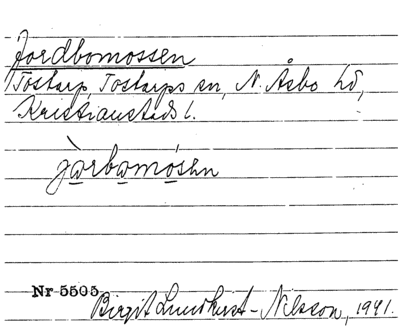 Jordbomossen
Tostarp, Tostarps sn, N. Åsbo hd,
Kristianstads l.
jòrbomósen
Nr 5505.
Birgit Lundkvist-Nilsson, 1941.